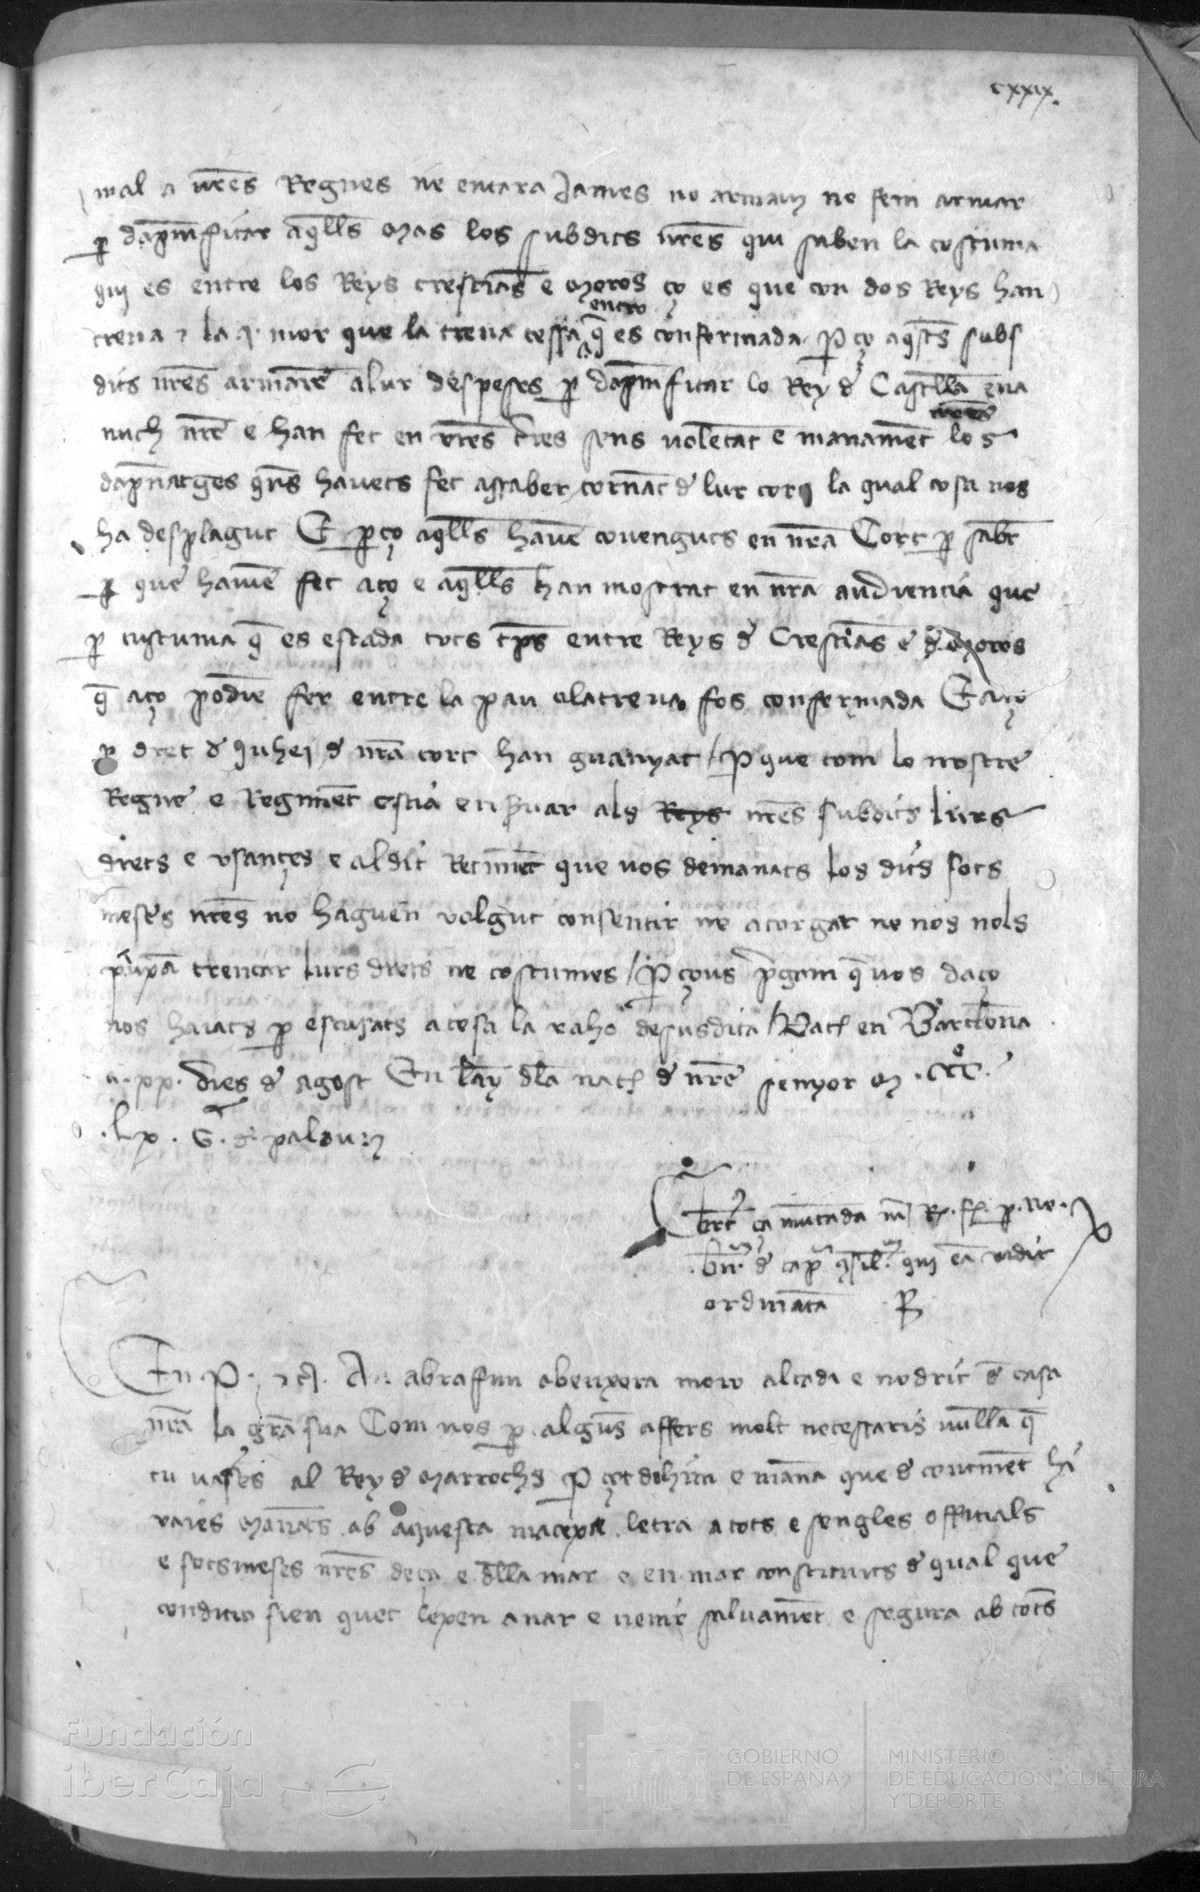 cxxix.
mal a nres Regnes ne encara James no armam ne fem armar
p dapnificar aqlls mas los subdits nres qui saben la costuma
qui es entre los Reys crestians e moros ço es que con dos Reys han
entro
treua la mor que la treua cessa q es confermada. P ço aqsts subs
dits nres armare a lur despeses p dapnificar lo Rey de Castlla ena
nres
mich nre e han fet en vres tres sens volentat e manament los
dapnatges qns havets fet assaber cornat de lur cors la qual cosa nos
ha desplagut E p ço aqlls have convenguts en nra Cort p saber
p que have fet aço e aqlls han mostrat en nra audiencia que
p custuma q es estada tots temps entre Reys de Crestians e de moros
q aço podie fer entre la pau o la treua fos confermada E aço
p dret de juhei de nra cort han guanyat / P que com lo nostre
Regne e Regiment estia en servar als Reys nres subdits lurs
drets e usançes e al dit Retiment que vos demanats los dits sots
meses nres no haguen volgut consentir ne atorgar ne nos nols
trencar lurs drets ne costumes / P çous pgam q vos daço
nos haiats p escusats a tesa la raho desusdita / Dat en Barchna
a . xx . dies de agost En lany dla nat de nre senyor M . CCC .
. Lx . G . de palau
ca mutada
qui ea vidit
ordinata
En P . etc. An abrafim abenxora moro alcadi e nodrit de casa
nra la gra sua Com nos p alguns affers molt necessaris vullam q
tu vages al Rey de Marrochs P çot dehim e mana que de continent hi
vaies ab aquesta mateixa letra a tots e sengles officials
e sotsmeses nres deça e dlla mar e en mar constituits de qual que
condicio sien quet lexen anar e venir salvament e segura ab tots
Fundación
iberCaja
GOBIERNO
DE ESPAÑA
MINISTERIO
DE EDUCACIÓN, CULTURA
Y DEPORTE